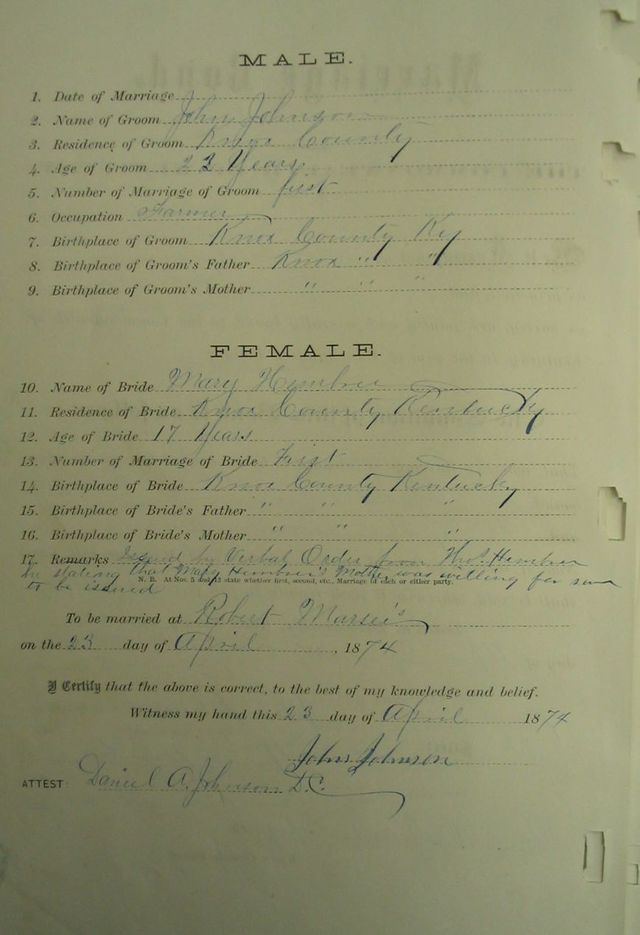 MALE.
1. Date of Marriage
2. Name of Groom John Johnson
3. Residence of Groom Knox County
4. Age of Groom 23 Years
5. Number of Marriage of Groom first
6. Occupation Farmer
7. Birthplace of Groom Knox County Ky
8. Birthplace of Groom's Father Knox " "
9. Birthplace of Groom's Mother " " "
FEMALE.
10. Name of Bride Mary Hembree
11. Residence of Bride Knox County Kentucky
12. Age of Bride 17 Years
13. Number of Marriage of Bride First
14. Birthplace of Bride Knox County Kentucky
15. Birthplace of Bride's Father " " "
16. Birthplace of Bride's Mother " " "
17. Remarks Issued by Verbal Order from Hembree
he stating that Mary Hembree's Mother was willing for same
N. B. At Nos. 5 and 13 state whether first, second, etc., Marriage of each or either party.
to be issued
To be married at Robert
on the 23 day of April, 1874
I Certify that the above is correct, to the best of my knowledge and belief.
Witness my hand this 23 day of April 1874
John Johnson
ATTEST: Daniel A. Johnson D.C.